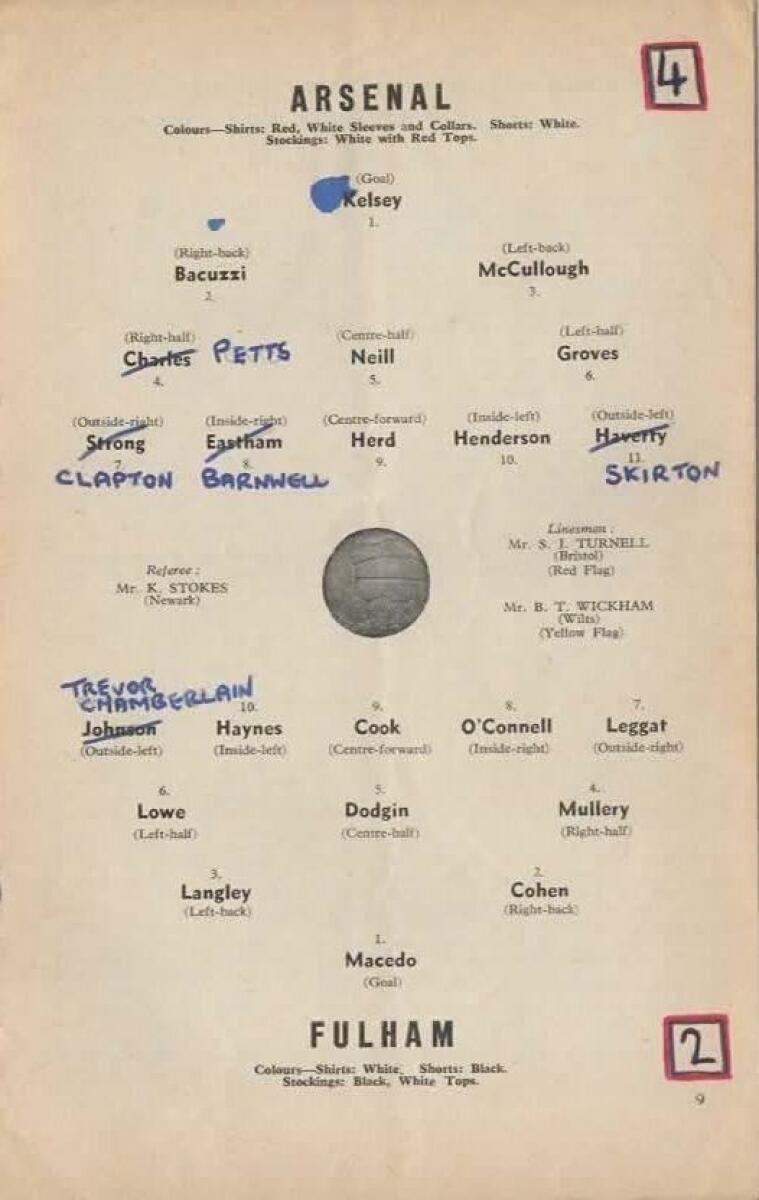 ARSENAL
4
Colours—Shirts: Red, White Sleeves and Collars. Shorts: White.
Stockings: White with Red Tops.
(Goal)
Kelsey
1.
(Right-back) (Left-back)
Bacuzzi McCullough
2. 3.
(Right-half) (Centre-half) (Left-half)
Charles PETTS Neill Groves
4. 5. 6.
(Outside-right) (Inside-right) (Centre-forward) (Inside-left) (Outside-left)
Strong Eastham Herd Henderson Haverty
7. 8. 9. 10. 11.
CLAPTON BARNWELL SKIRTON
Linesmen :
Mr. S. J. TURNELL
(Bristol)
(Red Flag)
Referee :
Mr. K. STOKES
(Newark)
Mr. B. T. WICKHAM
(Wilts)
(Yellow Flag)
TREVOR
CHAMBERLAIN
10. 9. 8. 7.
Johnson Haynes Cook O'Connell Leggat
(Outside-left) (Inside-left) (Centre-forward) (Inside-right) (Outside-right)
6. 5. 4.
Lowe Dodgin Mullery
(Left-half) (Centre-half) (Right-half)
3. 2.
Langley Cohen
(Left-back) (Right-back)
1.
Macedo
(Goal)
FULHAM
2
Colours—Shirts: White. Shorts: Black.
Stockings: Black, White Tops.
9